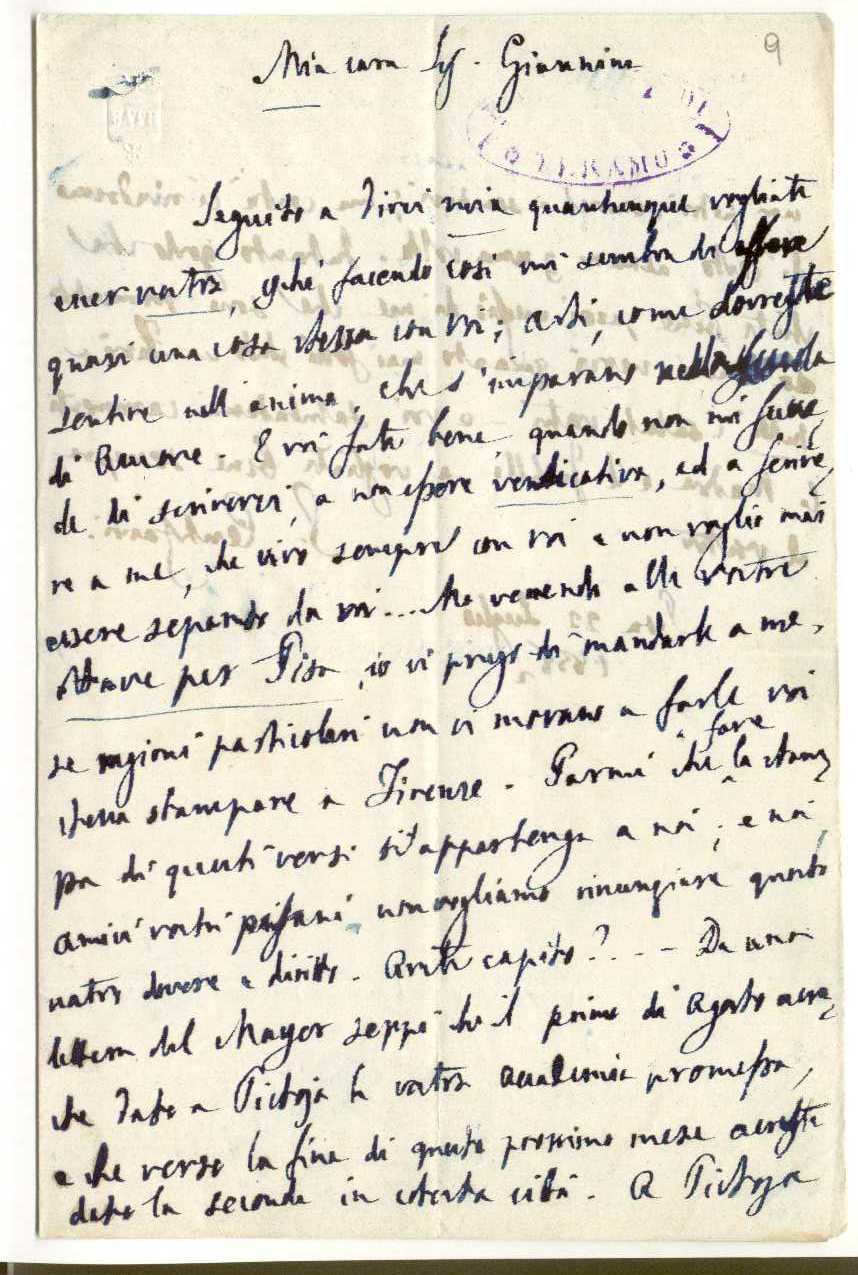 9
Mia cara Sig. Giannina
TERAMO
Seguito a dirvi mia quantunque vogliate
esser vostra, perché facendo così mi sembra di essere
quasi una cosa stessa con voi; Arti, come dovreste
sentire nell'anima, che s'imparano nella scuola
di Amore. E voi fate bene, quando non mi succe-
de di scriverci, a non essere vendicativa, ed a scrive-
re a me, che vivo sempre con voi e non voglio mai
essere separato da voi... Ma venendo alle vostre
Ottave per Pisa, io vi prego di mandarle a me,
se ragioni particolari non vi movano a farle voi
stessa stampare a Firenze. Parmi che fare la stam-
pa di questi versi si appartenga a noi; e noi
amici vostri pisani non vogliamo rinunziare questo
nostro dovere e diritto. Avete capito?... Da una
lettera del Mayer seppi che il primo di Agosto avre-
ste dato a Pistoja la vostra accademia promessa,
e che verso la fine di questo prossimo mese avreste
dato la seconda in cotesta città. A Pistoja